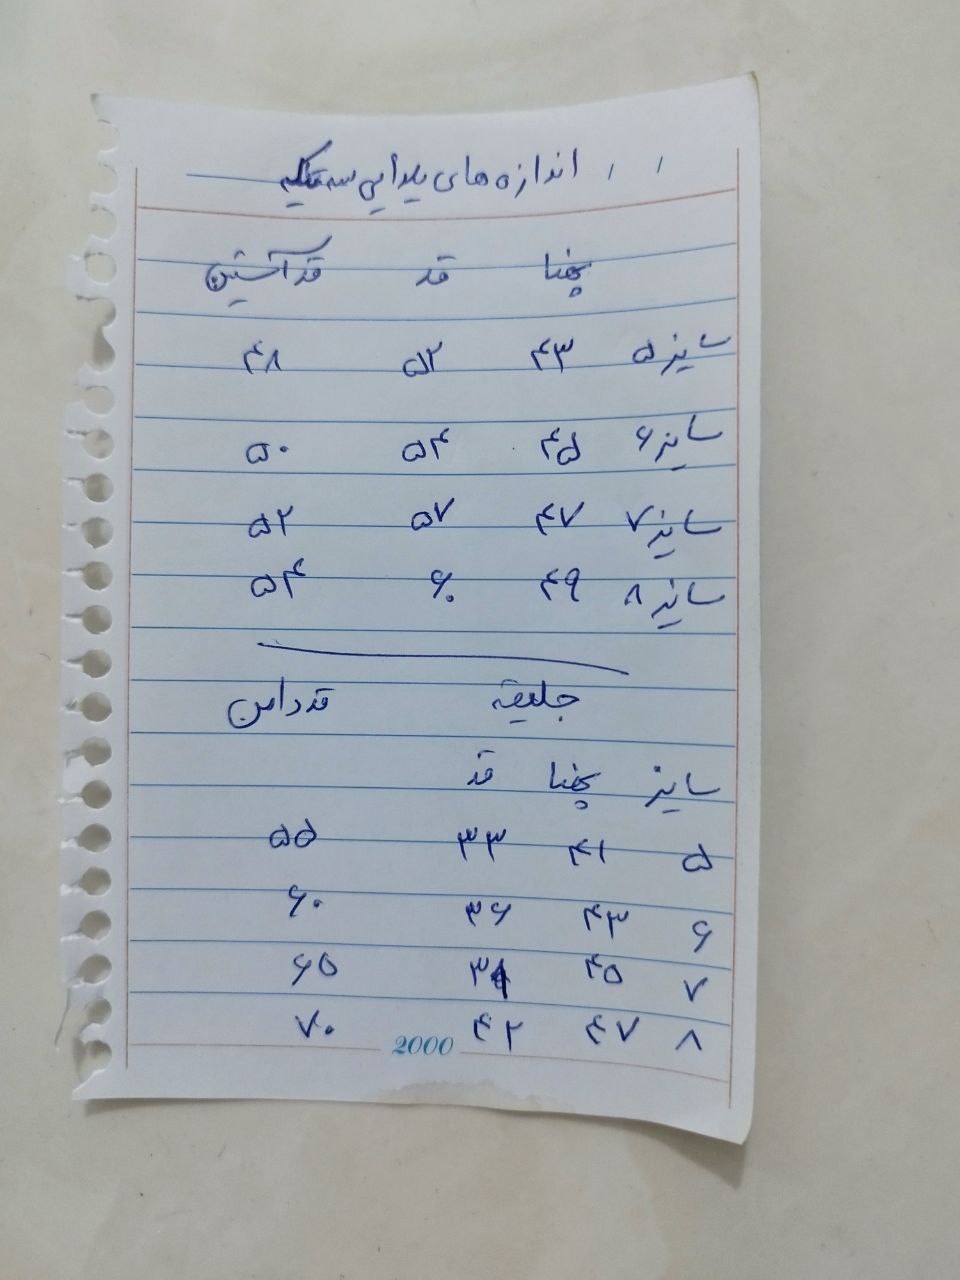 اندازه های یلدایی سه تیکه
پهنا قد قد آستین
سایز ۵ ۴۳ ۵۲ ۴۸
سایز ۶ ۴۵ ۵۴ ۵۰
سایز ۷ ۴۷ ۵۷ ۵۲
سایز ۸ ۴۹ ۶۰ ۵۴
جلیقه قد دامن
سایز پهنا قد
۵ ۴۱ ۳۳ ۵۵
۶ ۴۳ ۳۶ ۶۰
۷ ۴۵ ۳۹ ۶۵
۸ ۴۷ ۴۲ ۷۰
2000